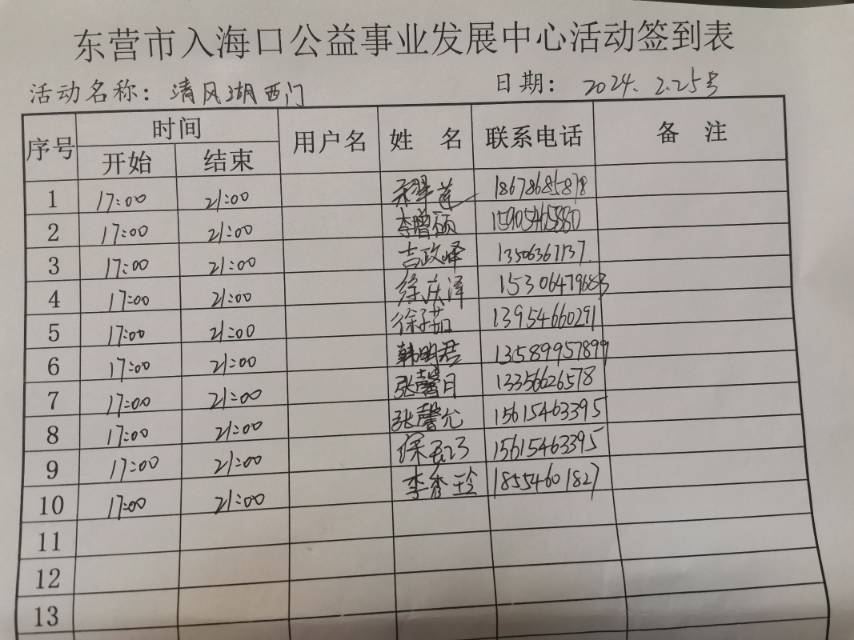 东营市入海口公益事业发展中心活动签到表
活动名称: 清风湖西门 日期: 2024.2.25号
序号 时间 用户名 姓名 联系电话 备注
开始 结束
1 17:00 21:00 18678685878
2 17:00 21:00 李曾硕 15905465880
3 17:00 21:00 吉政峄 13506367137
4 17:00 21:00 徐庆泽 15306479683
5 17:00 21:00 徐子茹 13954660291
6 17:00 21:00 韩明君 13589957899
7 17:00 21:00 张馨月 13356626578
8 17:00 21:00 张馨允 15615463395
9 17:00 21:00 15615463395
10 17:00 21:00 李香玲 18554601827
11
12
13